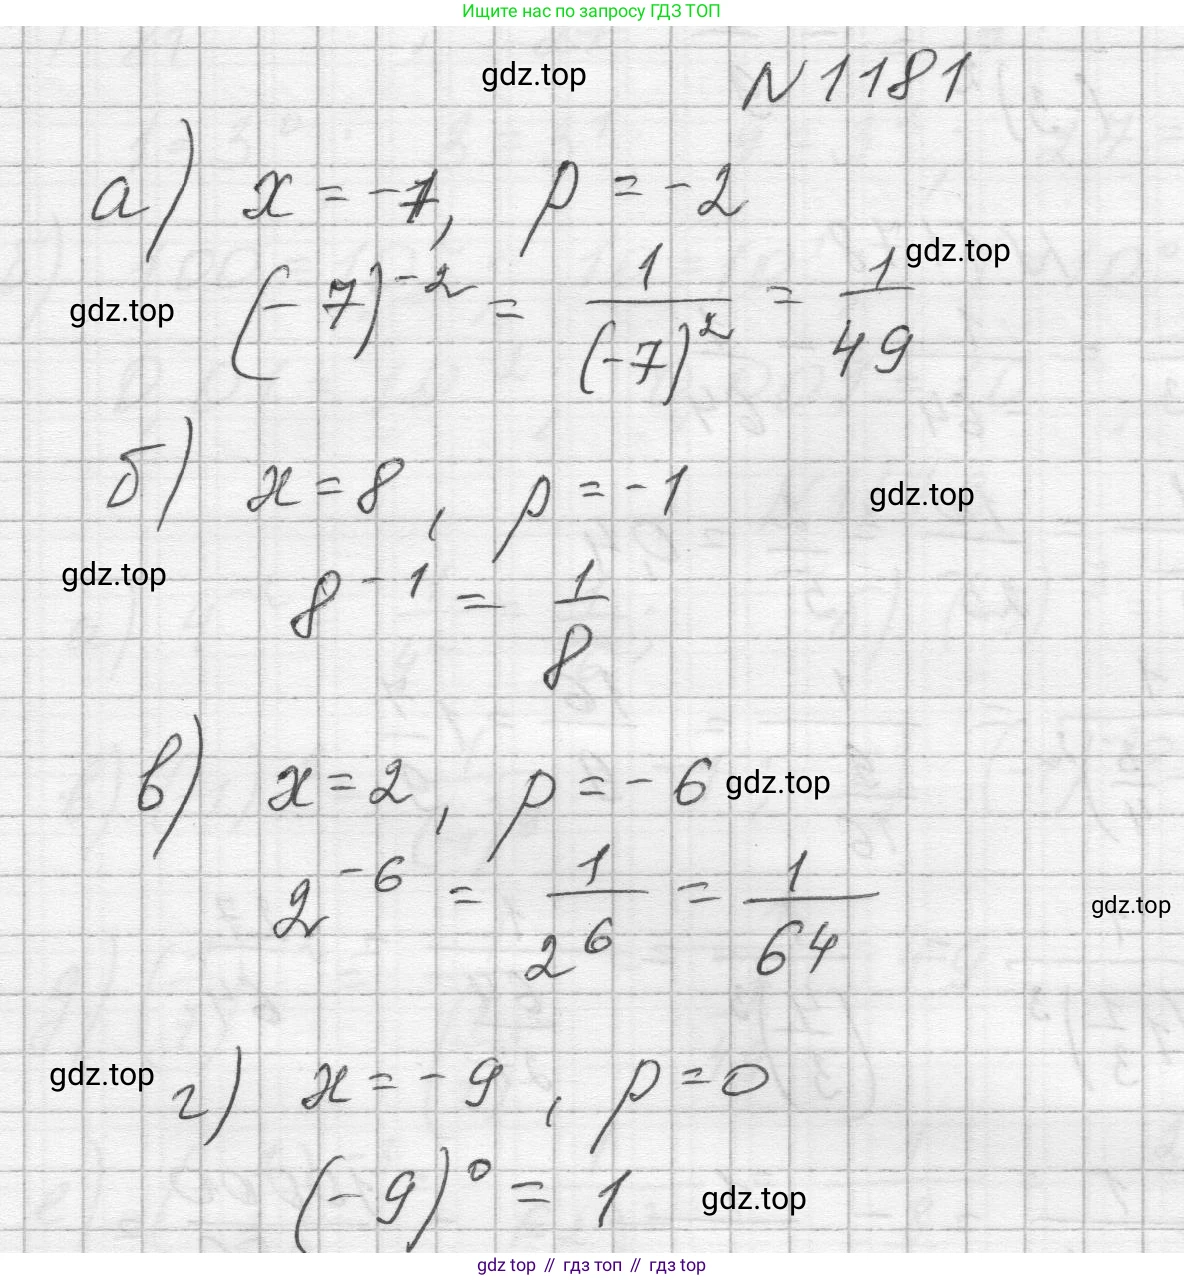 Ищите нас по запросу ГДЗ ТОП
gdz.top
N 1181
а) x = -7, p = -2
gdz.top
gdz.top
(-7)^{-2} = \frac{1}{(-7)^2} = \frac{1}{49}
б) x = 8, p = -1
gdz.top
gdz.top
8^{-1} = \frac{1}{8}
в) x = 2, p = -6
gdz.top
2^{-6} = \frac{1}{2^6} = \frac{1}{64}
gdz.top
gdz.top
г) x = -9, p = 0
(-9)^0 = 1
gdz.top
gdz top // гдз топ // гдз top